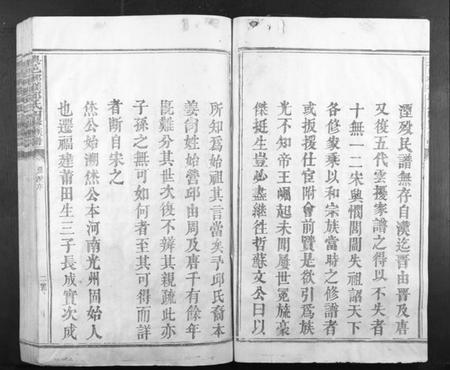 湮歿民譜無存自漢迄晉由晉及唐
又後五代雲擾家譜之得以不失者
十無一二宋與憫閭閻失祖詔天下
各修家乘以和宗族當時之修譜者
或扳援仕宦附會前賢是欲引爲族
光不知帝王崛起未聞屢世冕旒豪
傑挺生豈必盡繼徃哲蘇文公曰以
所知爲始祖其言當矣予邱氏裔本
姜尙姓始營邱由周及唐千有餘年
旣難分其世次復不辨其親疏此亦
子孫之無可如何者至其可得而詳
者斷自宋之
烋公始溯烋公本河南光州固始人
也遷福建莆田生三子長成實次成